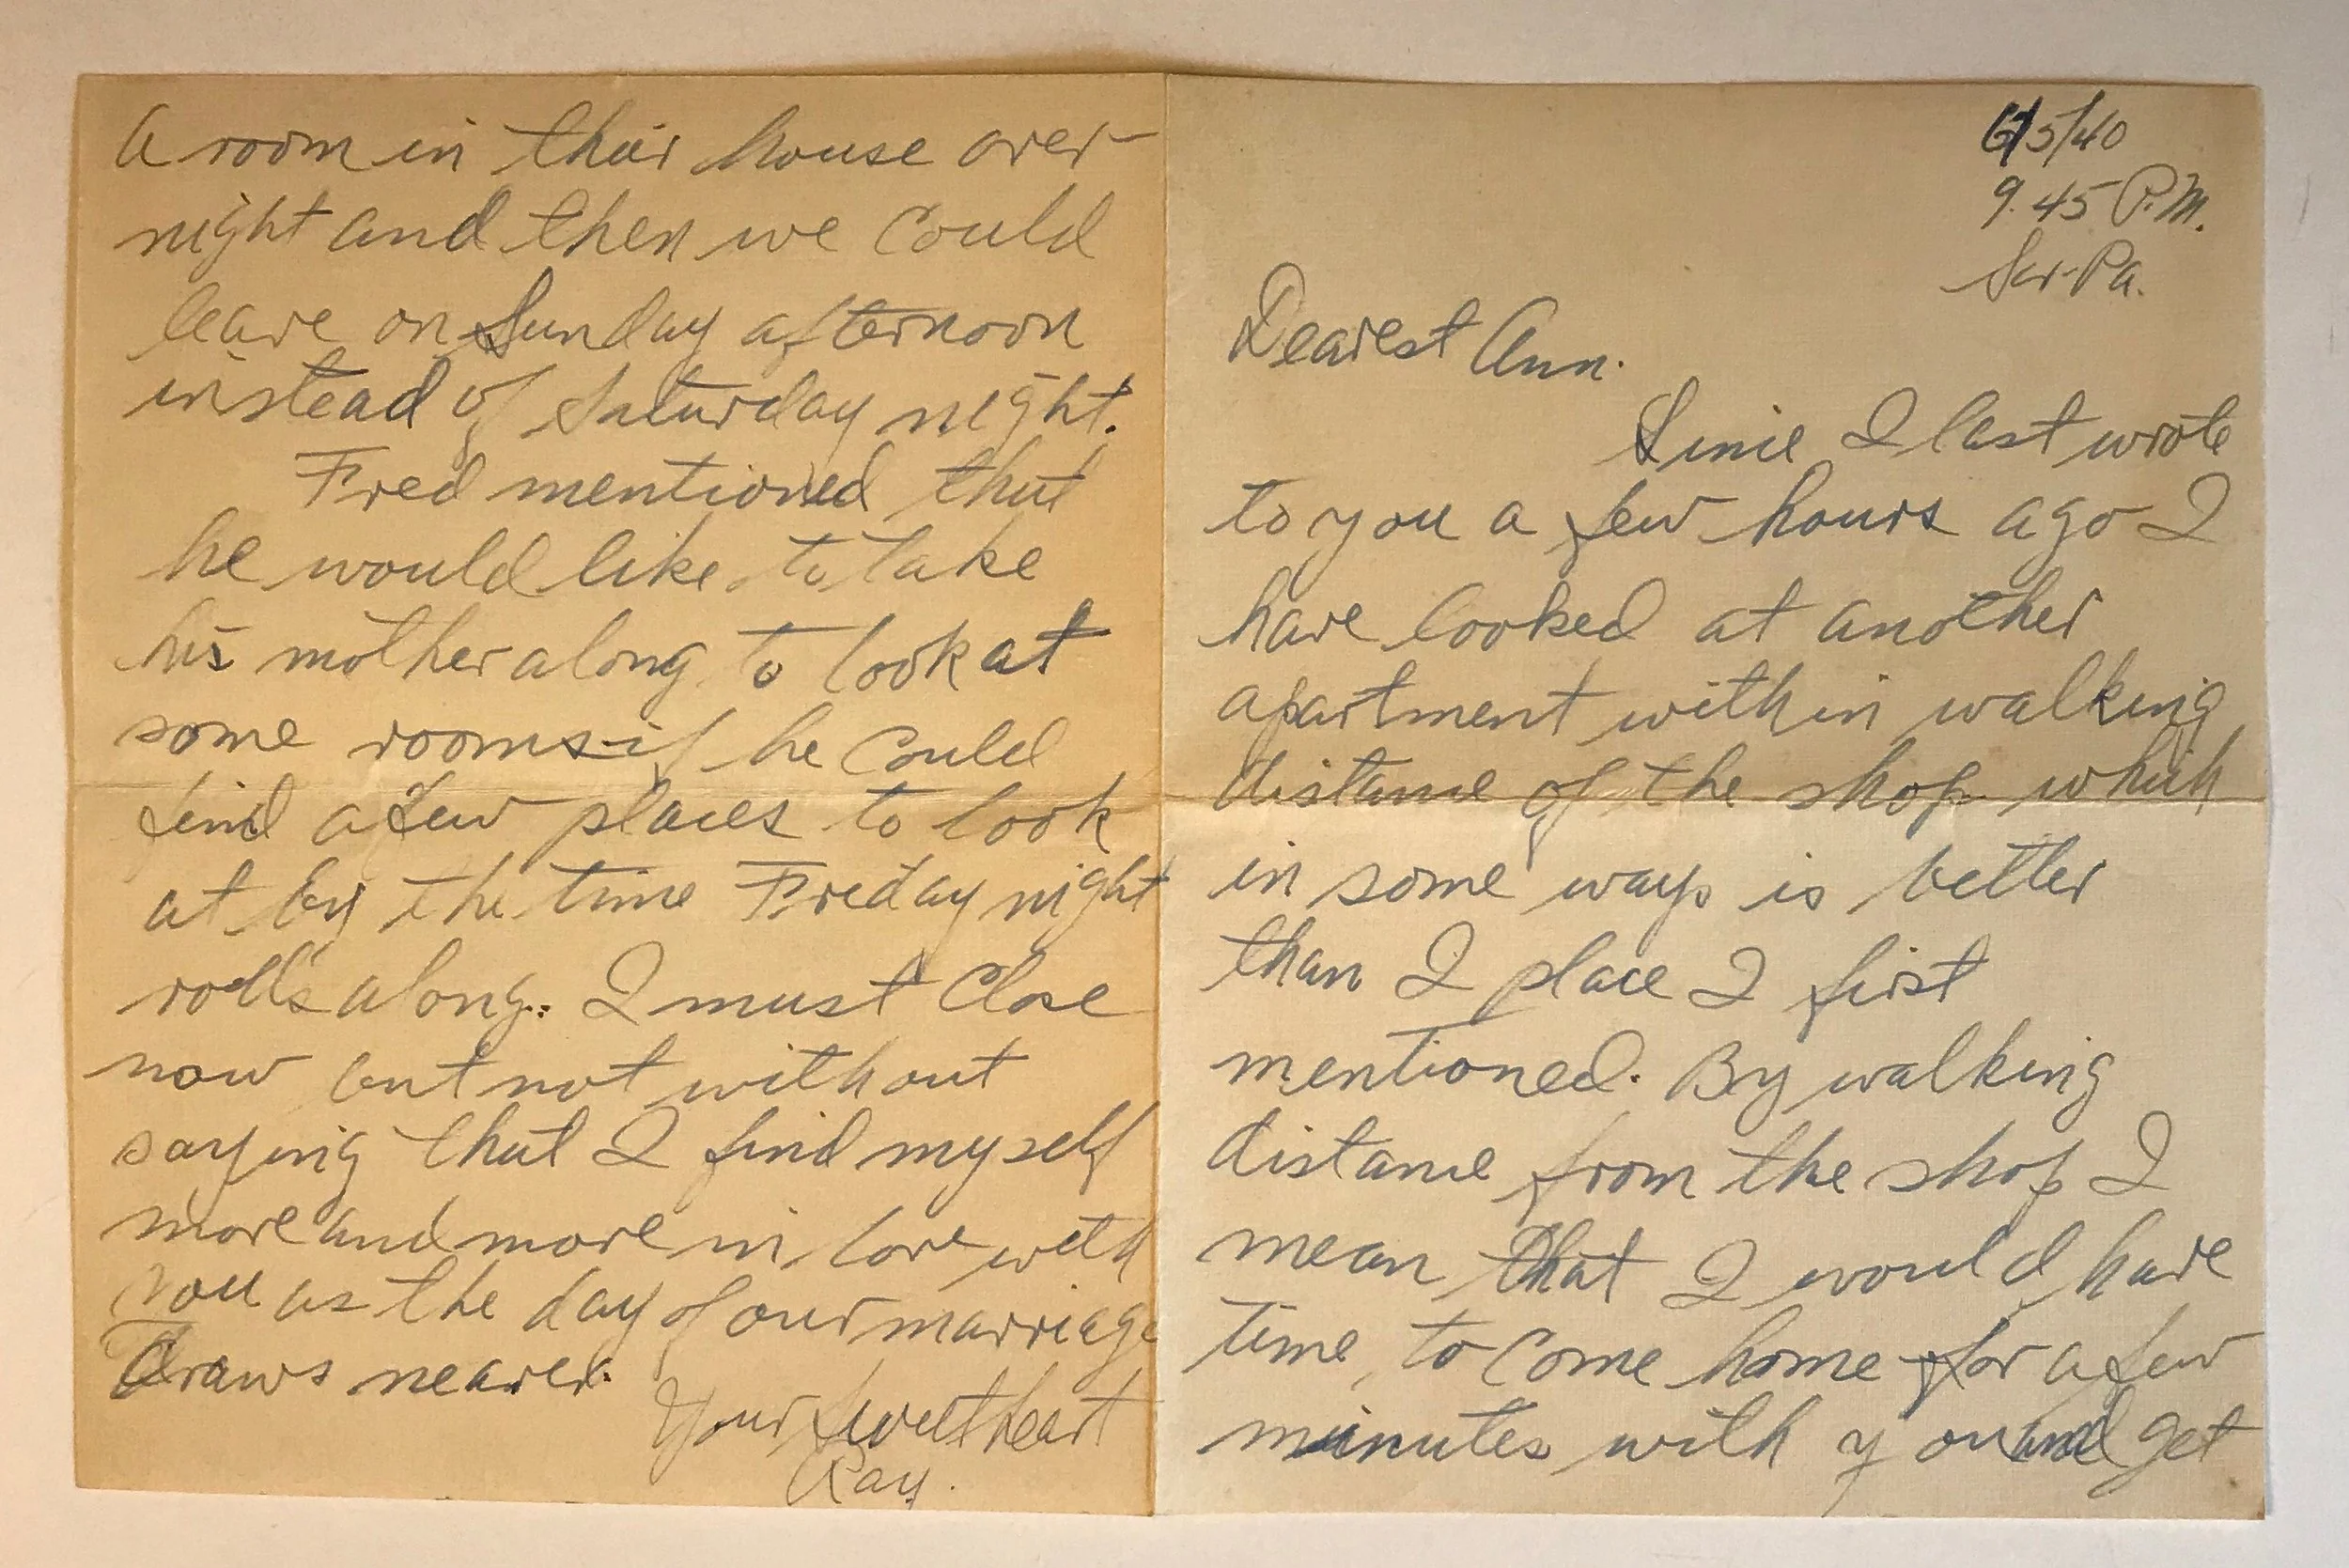 6/5/40
9.45 P.M.
Scr-Pa.
Dearest Ann.
Since I last wrote
to you a few hours ago I
have looked at another
apartment within walking
distance of the shop which
in some ways is better
than I place I first
mentioned. By walking
distance from the shop I
mean that I would have
time, to come home for a few
minutes with you and get
a room in their house over-
night and then we could
leave on Sunday afternoon
instead of Saturday night.
Fred mentioned that
he would like to take
his mother along to look at
some rooms if he could
find a few places to look
at by the time Friday night
rolls along. I must close
now but not without
saying that I find myself
more and more in love with
you as the day of our marriage
draws nearer.
Your Sweetheart
Ray.